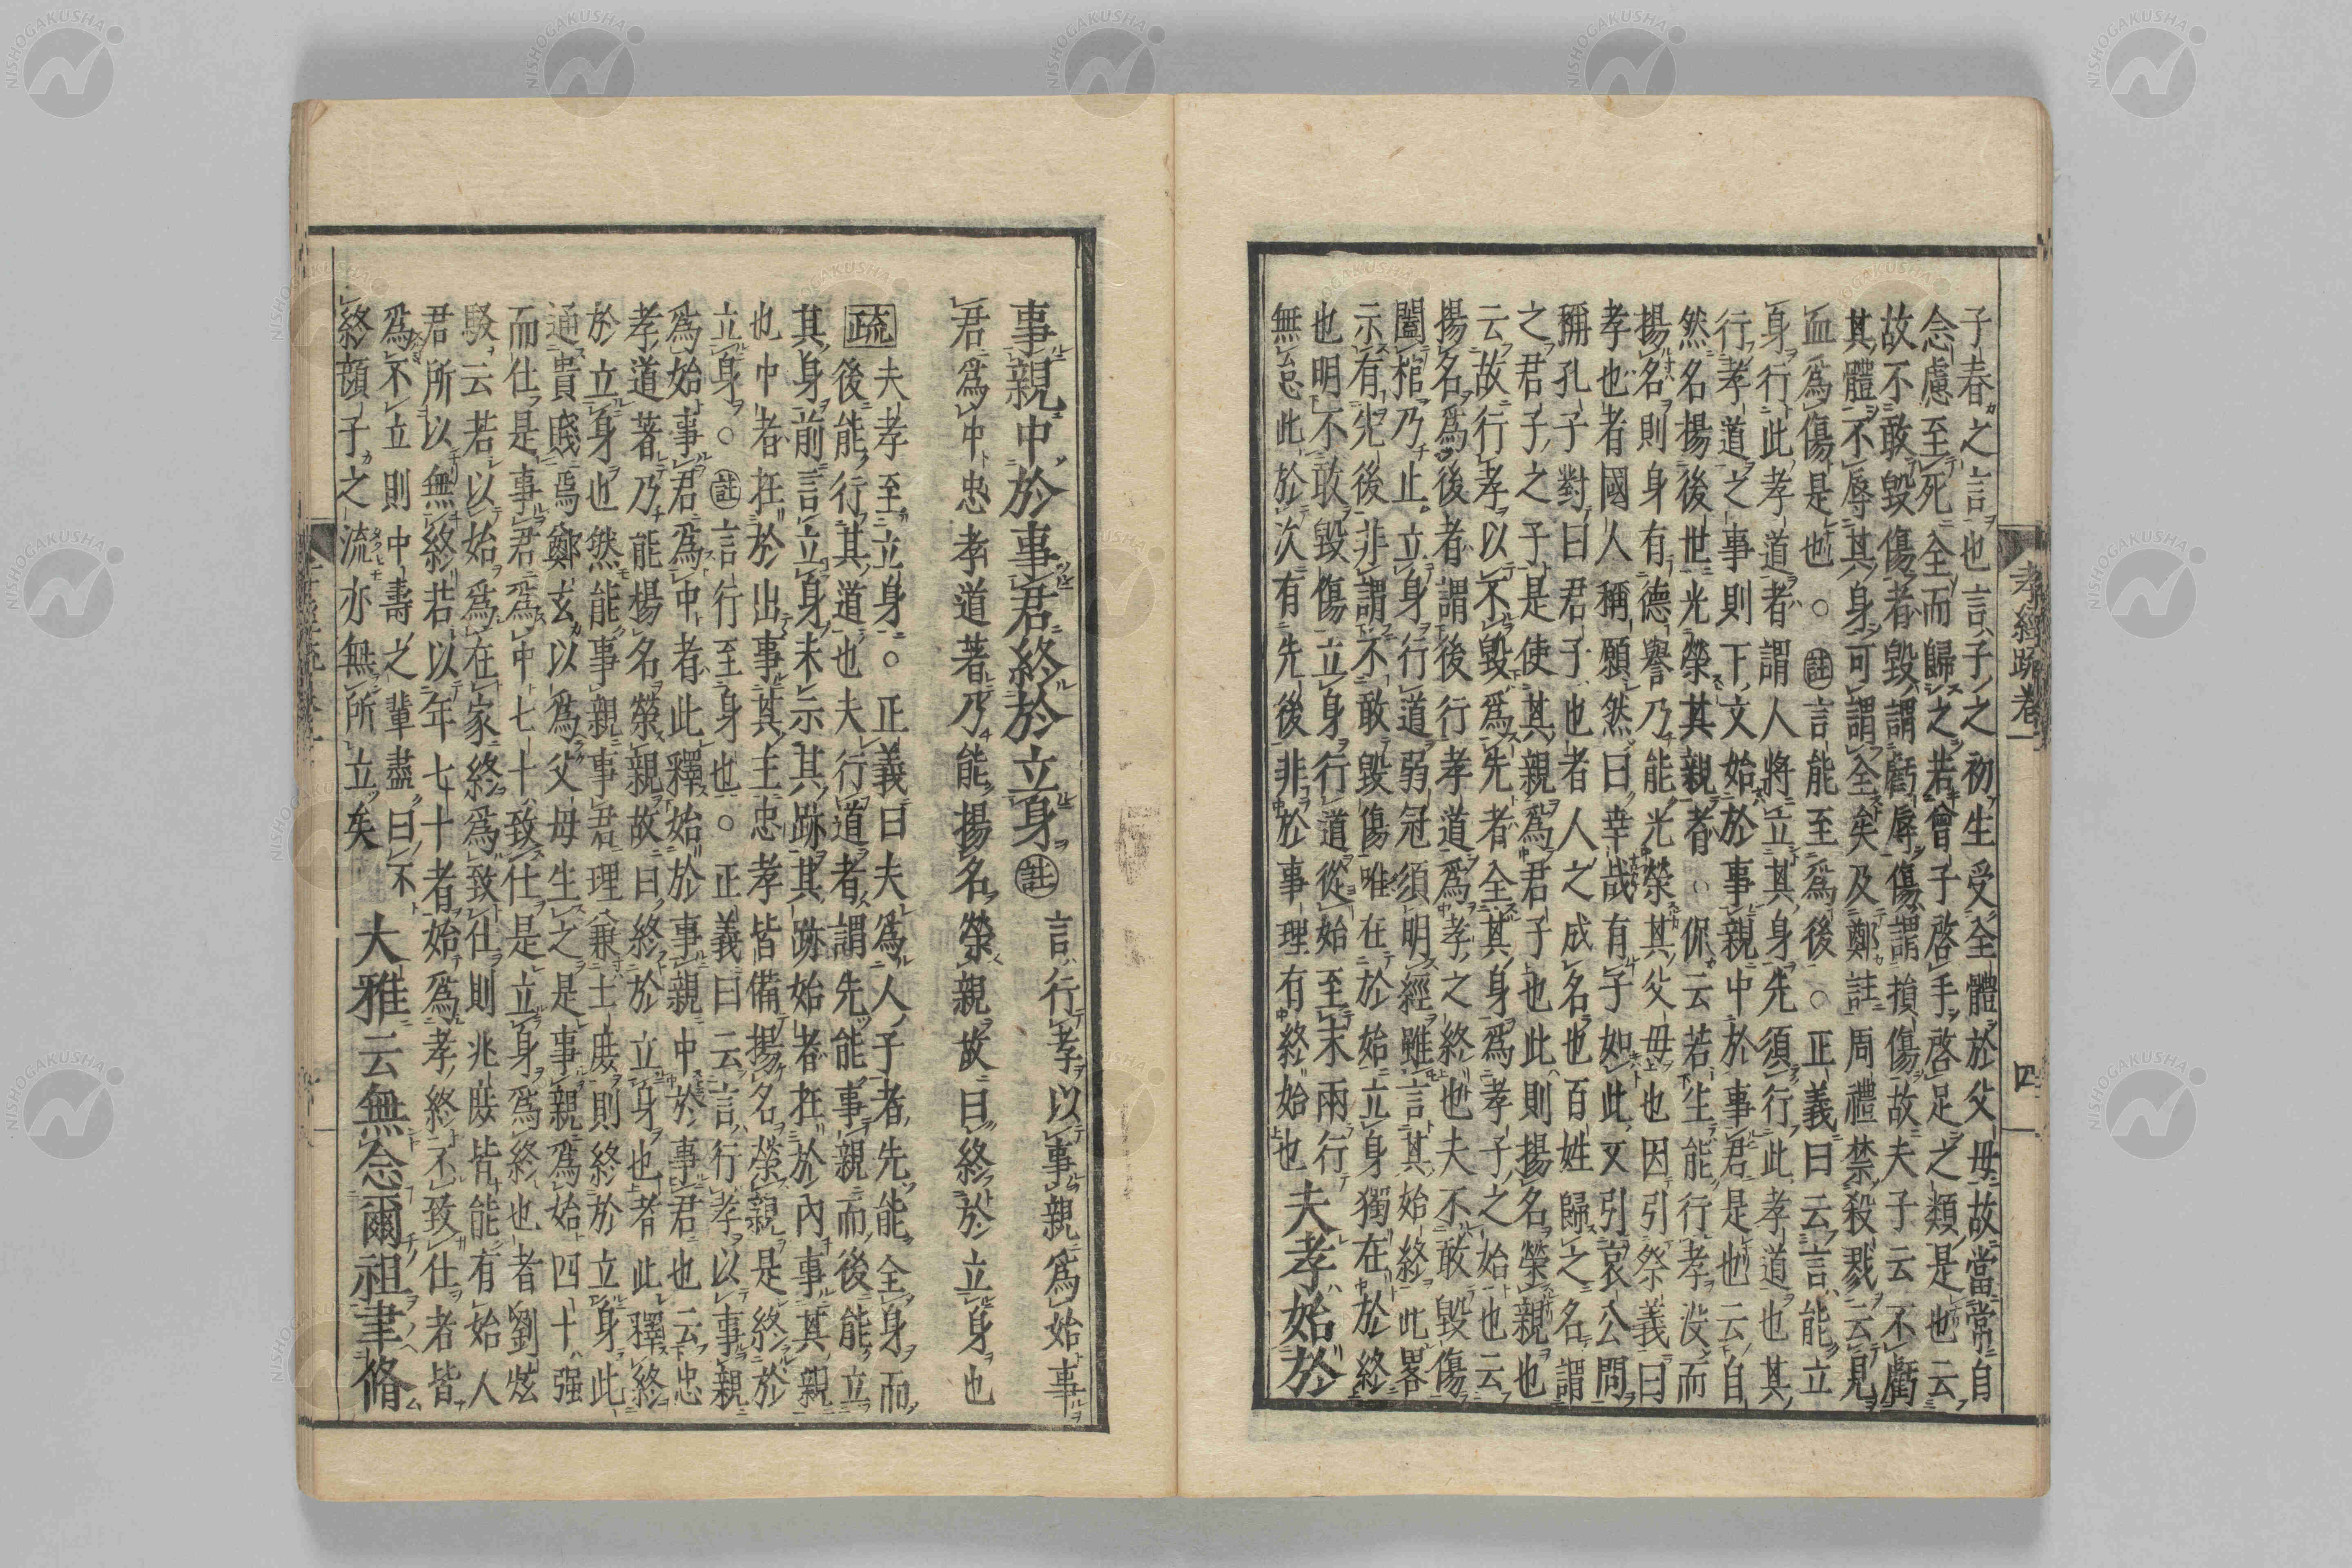 孝經疏卷一
四
子春之言也言子之初生受全體於父母故當常自
念慮至死全而歸之若曾子啓手啓足之類是也云
故不敢毀傷者毀謂虧辱傷謂損傷故夫子云不虧
其體不辱其身可謂全矣及鄭註周禮禁殺戮云見
血爲傷是也○註言能至爲後○正義曰云言能立
身行此孝道者謂人將立其身先須行此孝道也其
行孝道之事則下文始於事親中於事君是也云自
然名揚後世光榮其親者○侃云若生能行孝没而
揚名則身有德譽乃能光榮其父母也因引祭義曰
孝也者國人稱願然曰幸哉有子如此又引哀公問
稱孔子對曰君子也者人之成名也百姓歸之名謂
之君子之子是使其親爲君子也此則揚名榮親也
云故行孝以不毀爲先者全其身爲孝子之始也云
揚名爲後者謂後行孝道爲孝之終也夫不敢毀傷
闔棺乃止立身行道弱冠須明經雖言其始終此畧
示有先後非謂不敢毀傷唯在於始立身獨在於終
也明不敢毀傷立身行道從始至末兩行
無怠此於次有先後非於事理有終始也夫孝始於
事親中於事君終於立身註言行孝以事親爲始事
君爲中忠孝道著乃能揚名榮親故曰終於立身也
疏夫孝至立身○正義曰夫爲人子者先能全身而
後能行其道也夫行道者謂先能事親而後能立
其身前言立身末示其跡其跡始者在於內事其親
也中者在於出事其主忠孝皆備揚名榮親是終於
立身○註言行至身也○正義曰云言行孝以事親
爲始事君爲中者此釋始於事親中於事君也云忠
孝道著乃能揚名榮親故曰終於立身也者此釋終
於立身也然能事親事君理兼士庶則終於立身此
通貴賤焉鄭玄以爲父母生之是事親爲始四十强
而仕是事君爲中七十致仕是立身爲終也者劉炫
駁云若以始爲在家終爲致仕則兆庶皆能有始人
君所以無終若以年七十者始爲孝終不致仕者皆
爲不立則中壽之輩盡曰不
終顔子之流亦無所立矣大雅云無念爾祖聿脩